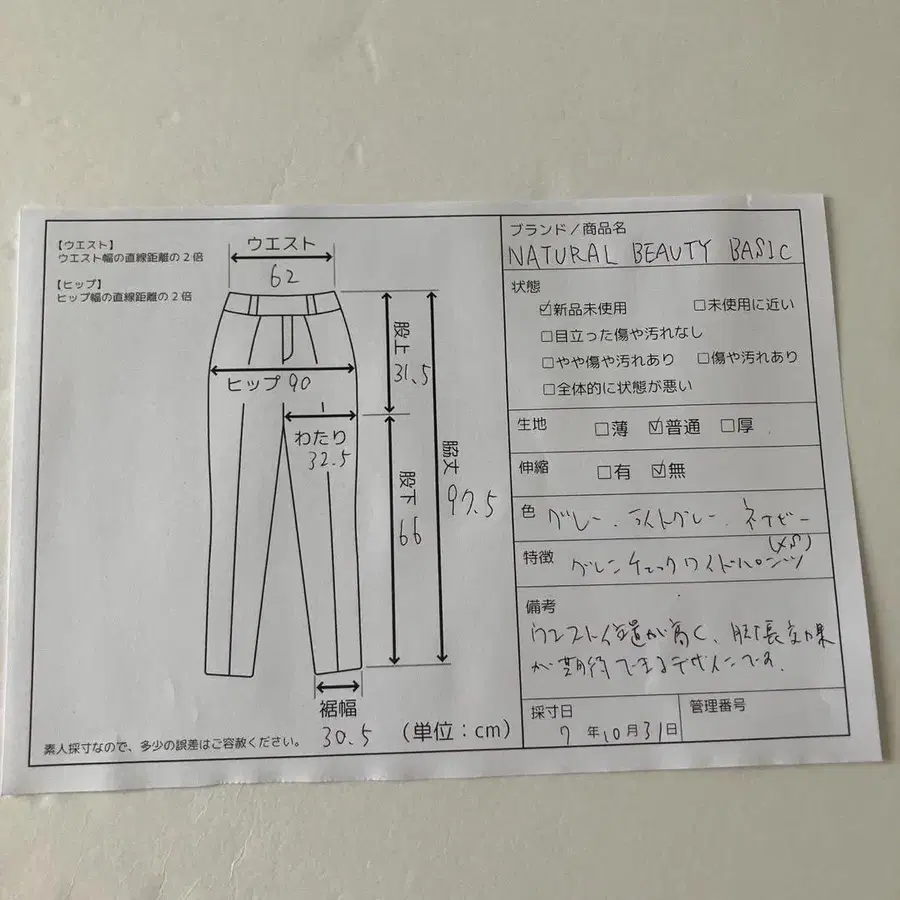 【ウエスト】
ウエスト幅の直線距離の2倍
【ヒップ】
ヒップ幅の直線距離の2倍
ウエスト
62
ヒップ 90
股上
31.5
わたり
32.5
股下
66
脇丈
97.5
裾幅
30.5
(単位:cm)
素人採寸なので、多少の誤差はご容赦ください。
ブランド/商品名
NATURAL BEAUTY BASIC
状態
☑新品未使用 □未使用に近い
□目立った傷や汚れなし
□やや傷や汚れあり □傷や汚れあり
□全体的に状態が悪い
生地 □薄 ☑普通 □厚
伸縮 □有 ☑無
色 グレー、ライトグレー、ネイビー
(XS)
特徴 グレンチェックワイドパンツ
備考
ウエスト位置が高く、脚長効果
が期待できるデザインです。
採寸日
7年10月31日
管理番号